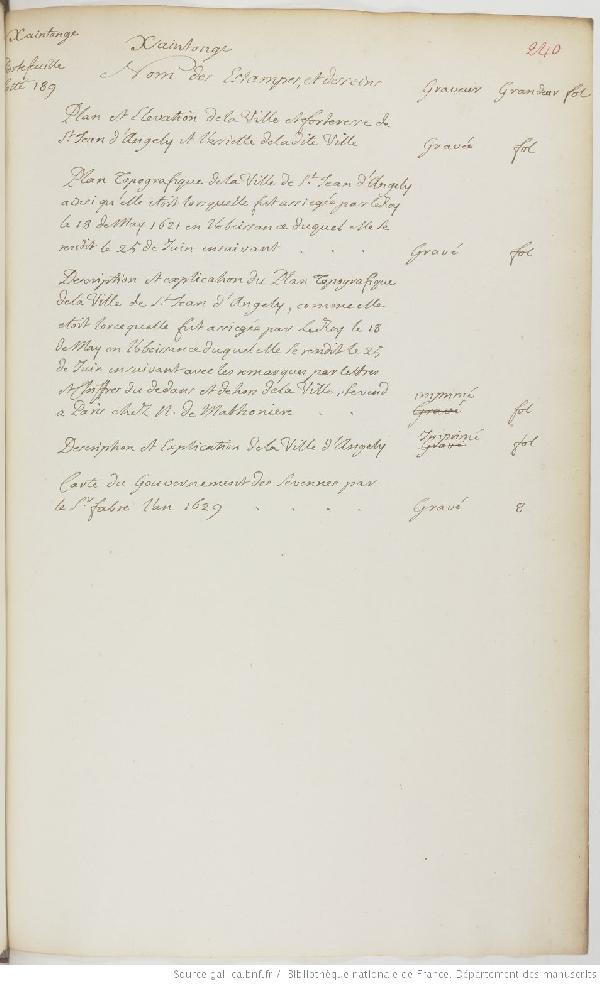 Xaintonge
Portefeuille
cotté 189
240
Xaintonge
Nom des Estampes, et desseins
Graveur Grandeur fol
Plan et Elevation de la Ville et forteresse de
St. Jean d'Angely et de la dite Ville Gravée fol
Plan Topografique de la Ville de St. Jean d'Angely
ainsi qu'elle etoit lorsquelle fut assiegée par le Roy
le 18 de May 1621 en l'obeissance duquel elle se
rendit le 25 de Juin ensuivant . . Gravé fol
Description et explication du Plan Topografique
de la Ville de St. Jean d'Angely, comme elle
etoit lorsquelle fut assiegée par le Roy le 18
de May en l'obeissance duquel elle se rendit le 25
de Juin ensuivant avec les remarques par lettres
et chiffres du dedans et dehors de la Ville, se vend
imprimé
a Paris chez N. de Mathoniere . . Gravé fol
Imprimé
Description et Explication de la Ville d'Angely Gravé fol
Carte du Gouvernement des Sevennes par
le Sr. fabre l'an 1629 . . . . Gravé 8
Source gallica.bnf.fr / Bibliothèque nationale de France. Département des manuscrits